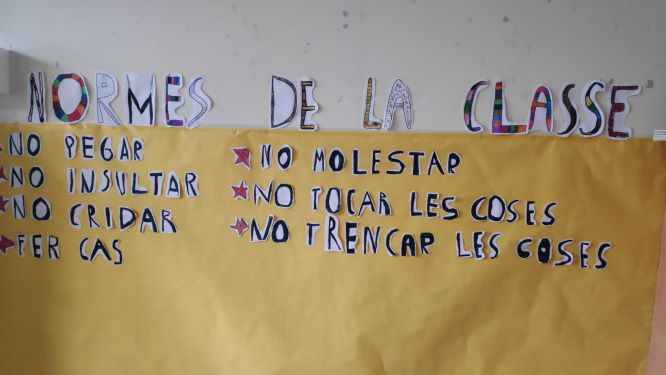 NORMES DE LA CLASSE
NO PEGAR
NO INSULTAR
NO CRIDAR
FER CAS
NO MOLESTAR
NO TOCAR LES COSES
NO TRENCAR LES COSES